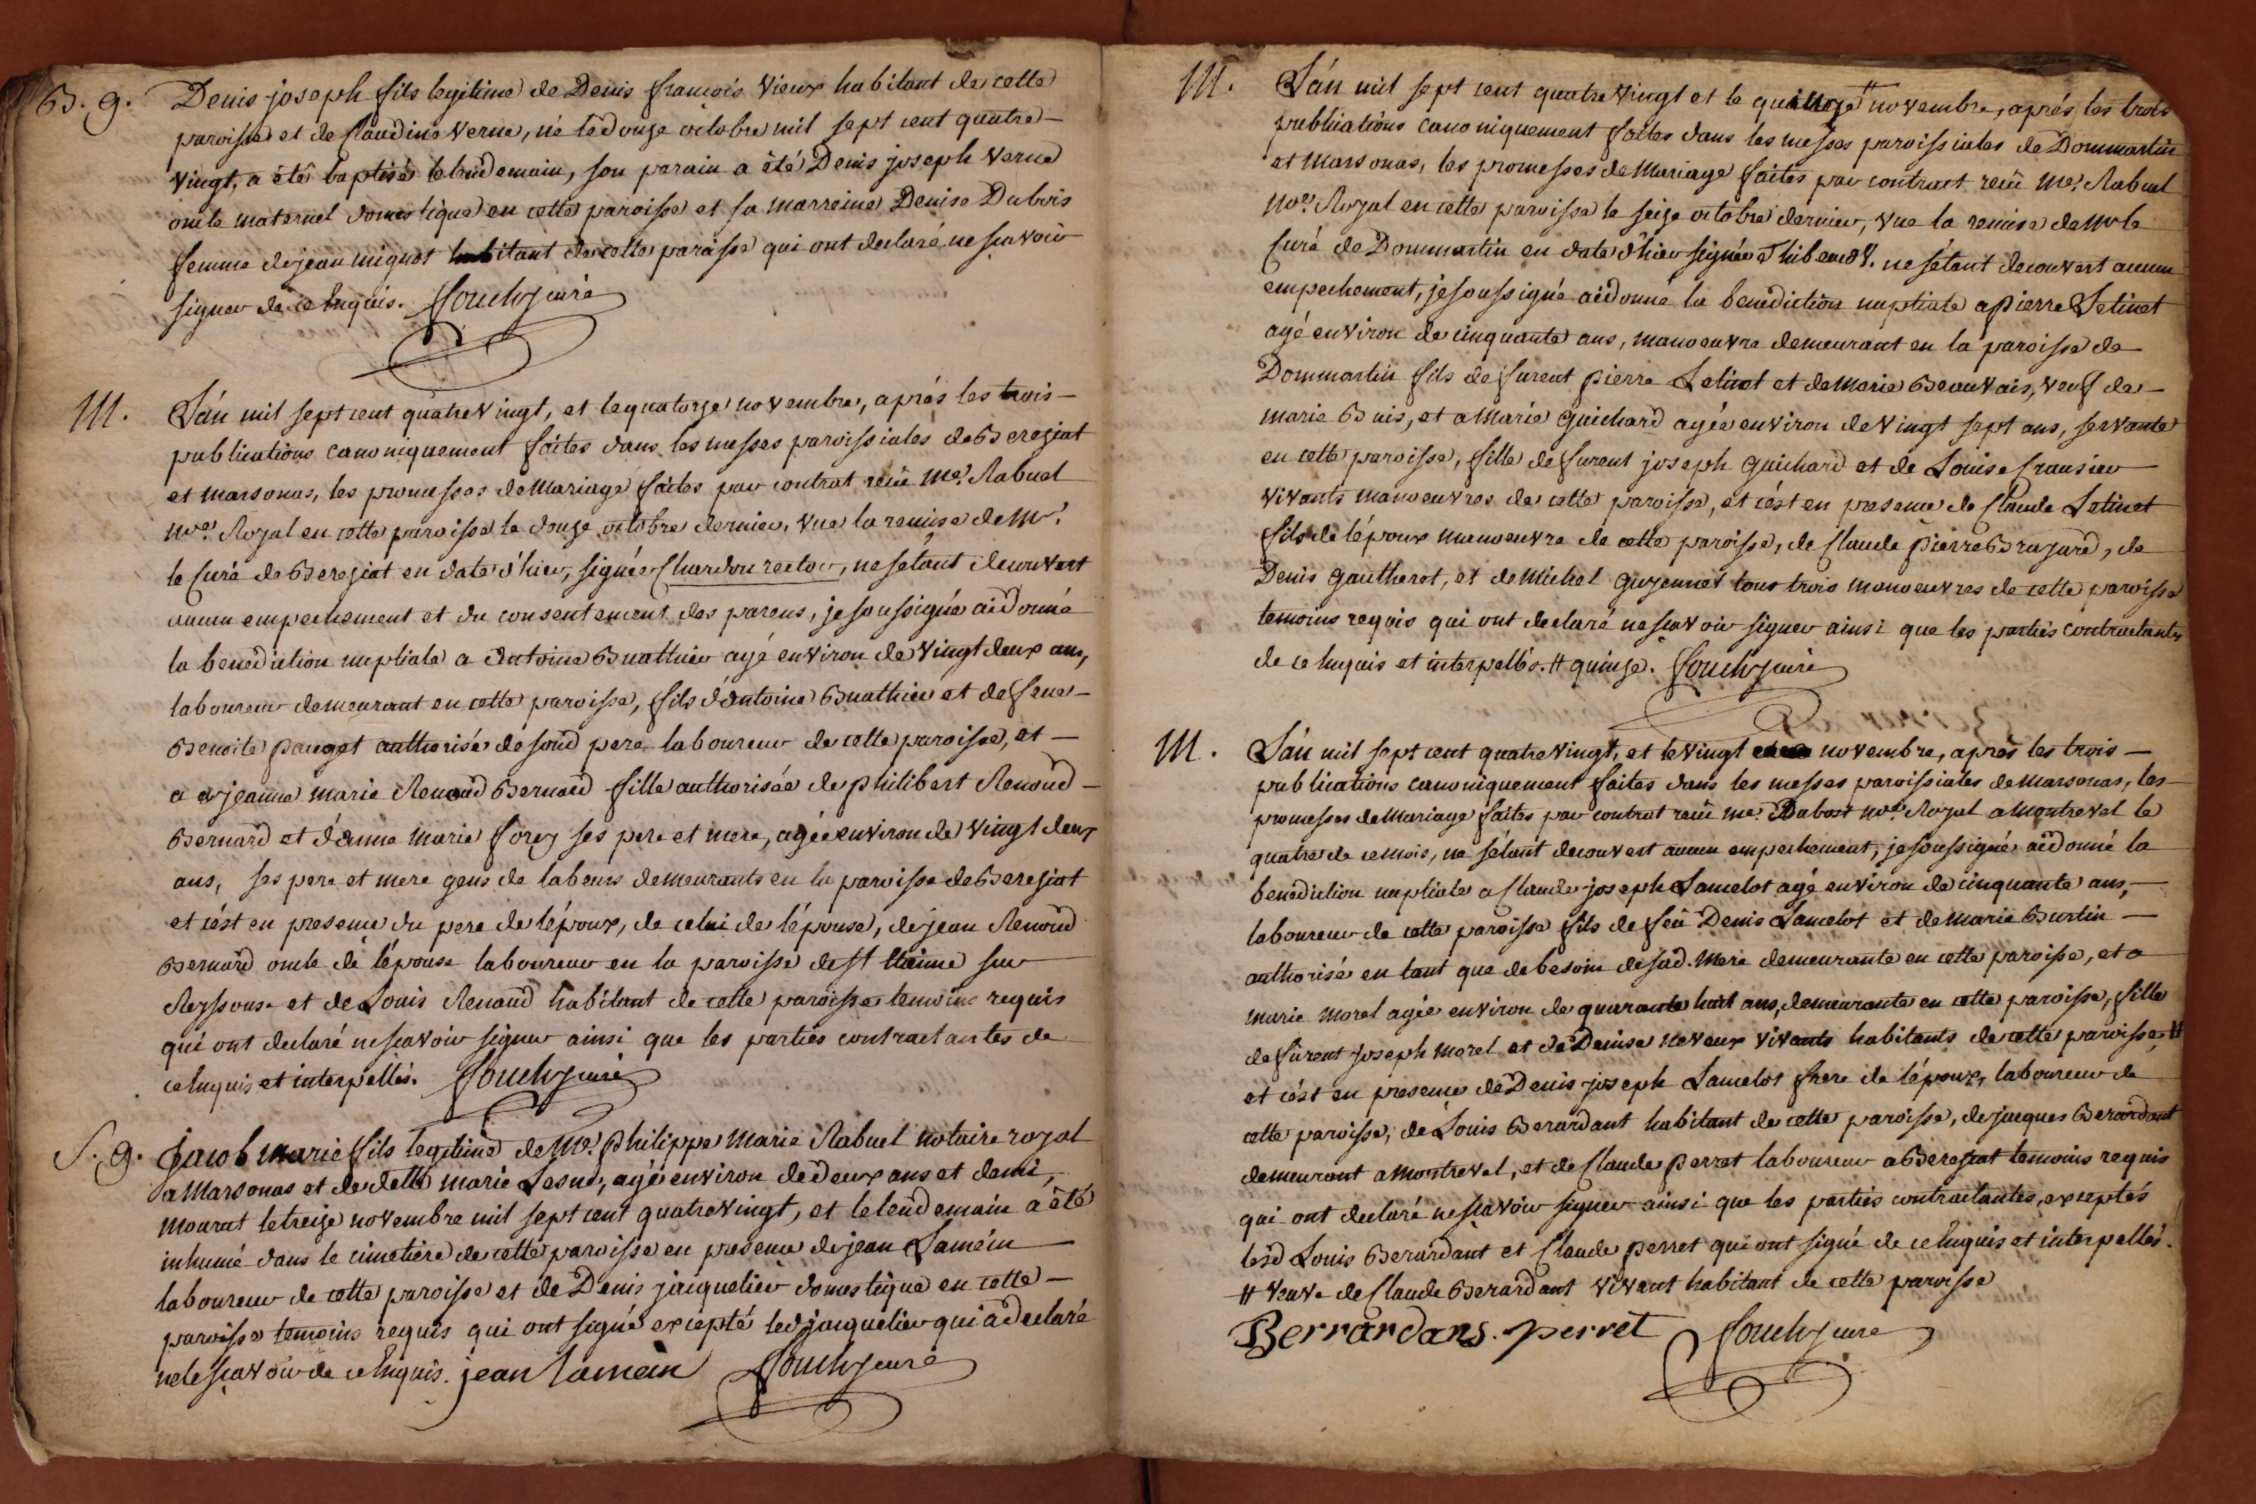 B. g. Denis joseph fils legitime de Denis françois Vieux habitant de cette
paroisse et de Claudine Verne, né le douze octobre mil sept cent quatre-
vingt, a été baptisé le lendemain, son parain a été Denis joseph Verne
oncle maternel domestique en cette paroisse et sa marreine Denise Dubois
femme de jean mignot habitant de cette paroisse qui ont declaré ne scavoir
signer de ce Enquis. Fouchy curé
M. L'an mil sept cent quatre Vingt, et le quatorze novembre, aprés les trois
publications canoniquement faites dans les messes paroissiales de Bereziat
et marsonas, les promesses de Mariage faites par contrat reçu Me. Rabuel
nore. Royal en cette paroisse le douze octobre dernier, vue la remise de Mr.
le Curé de Bereziat en date d'hier, signée Chardon rector, ne s'étant decouvert
aucun empechement et du consentement des parens, je soussigné ai donné
la benediction nuptiale a Antoine Buathier agé environ de vingt deux ans,
laboureur demeurant en cette paroisse, fils d'Antoine Buathier et de feue
Benoite pauget authorisé de soud pere laboureur de cette paroisse, et
a jeanne marie Renoud Bernard fille authorisée de philibert Renoud
Bernard et d'anne Marie forey ses pere et mere, agée environ de vingt deux
ans, ses pere et mere gens de labeurs demeurants en la paroisse de Bereziat
et c'est en presence du pere de l'époux, de celui de l'épouse, de jean Renoud
Bernard oncle de l'épouse laboureur en la paroisse de St sur
Reyssouse et de Louis Renaud habitant de cette paroisse temoins requis
qui ont declaré ne scavoir signer ainsi que les parties contractantes de
ce Enquis et interpellés. Fouchy curé
S. g. Jacob Marie fils legitime de Me. Philippe Marie Rabuel notaire royal
a Marsonas et de delle marie Lesne, agé environ de deux ans et demi,
mourut le treize novembre mil sept cent quatre vingt, et le lendemain a été
inhumé dans le cimetiére de cette paroisse en presence de jean Lamein
laboureur de cette paroisse et de Denis jacquelier domestique en cette
paroisse temoins requis qui ont signé excepté led jacquelier qui a declaré
ne le scavoir de ce Enquis. jean lamein Fouchy curé
M. L'an mil sept cent quatre Vingt et le # novembre, aprés les trois
publications canoniquement faites dans les messes paroissiales de Dommartin
et Marsonas, les promesses de Mariage faites par contract reçu Me. Rabuel
nore. Royal en cette paroisse le seize octobre dernier, Vue la remise de Mr le
Curé de Dommartin en date d'hier signée Thibaudt. ne s'étant decouvert aucun
empechement, je soussigné ai donné la benediction nuptiale a Pierre Letinet
agé environ de cinquante ans, manoeuvre demeurant en la paroisse de
Dommartin fils de furent pierre Letinet et de Marie Beauvais, veuf de
marie Buis, et a Marie Guichard agée environ de vingt sept ans, servante
en cette paroisse, fille de furent joseph Guichard et de Louise fransier
vivants manoeuvres de cette paroisse, et c'ést en presence de Claude Letinet
fils de l'époux manoeuvre de cette paroisse, de Claude Pierre Brujard, de
Denis Gautherot, et de Michel Guyennet tous trois manoeuvres de cette paroisse
temoins reqois qui ont declaré ne scavoir signer ainsi que les parties contractantes
de ce Enquis et interpellés. # quinze. Fouchy curé
M. L'an mil sept cent quatre vingt, et le vingt novembre, aprés les trois
publications canoniquement faites dans les messes paroissiales de Marsonas, les
promesses de Mariage faites par contrat reçu me. Dubost nore. Royal a Montrevel le
quatre de ce mois, ne s'étant decouvert aucun empechement, je soussigné ai donné la
benediction nuptiale a Claude joseph Lamelot agé environ de cinquante ans,
laboureur de cette paroisse fils de feu Denis Lamelot et de marie Burtin
authorisé en tant que de besoin de sad. Mere demeurante en cette paroisse, et a
marie Morel agée environ de quarante huit ans, demeurante en cette paroisse, fille
de furent joseph morel et de Denise neveux vivants habitants de cette paroisse #
et c'ést en presence de Denis joseph Lamelot frere de l'époux, laboureur de
cette paroisse, de Louis Berardant habitant de cette paroisse, de jacques Berardant
demeurant a Montrevel, et de Claude perret laboureur a Bereziat temoins requis
qui ont declaré ne scavoir signer ainsi que les parties contractantes, exceptés
lesd Louis Berardant et Claude perret qui ont signé de ce Enquis et interpellés.
# veuve de Claude Berardant vivant habitant de cette paroisse
Berrardans. perret Fouchy curé